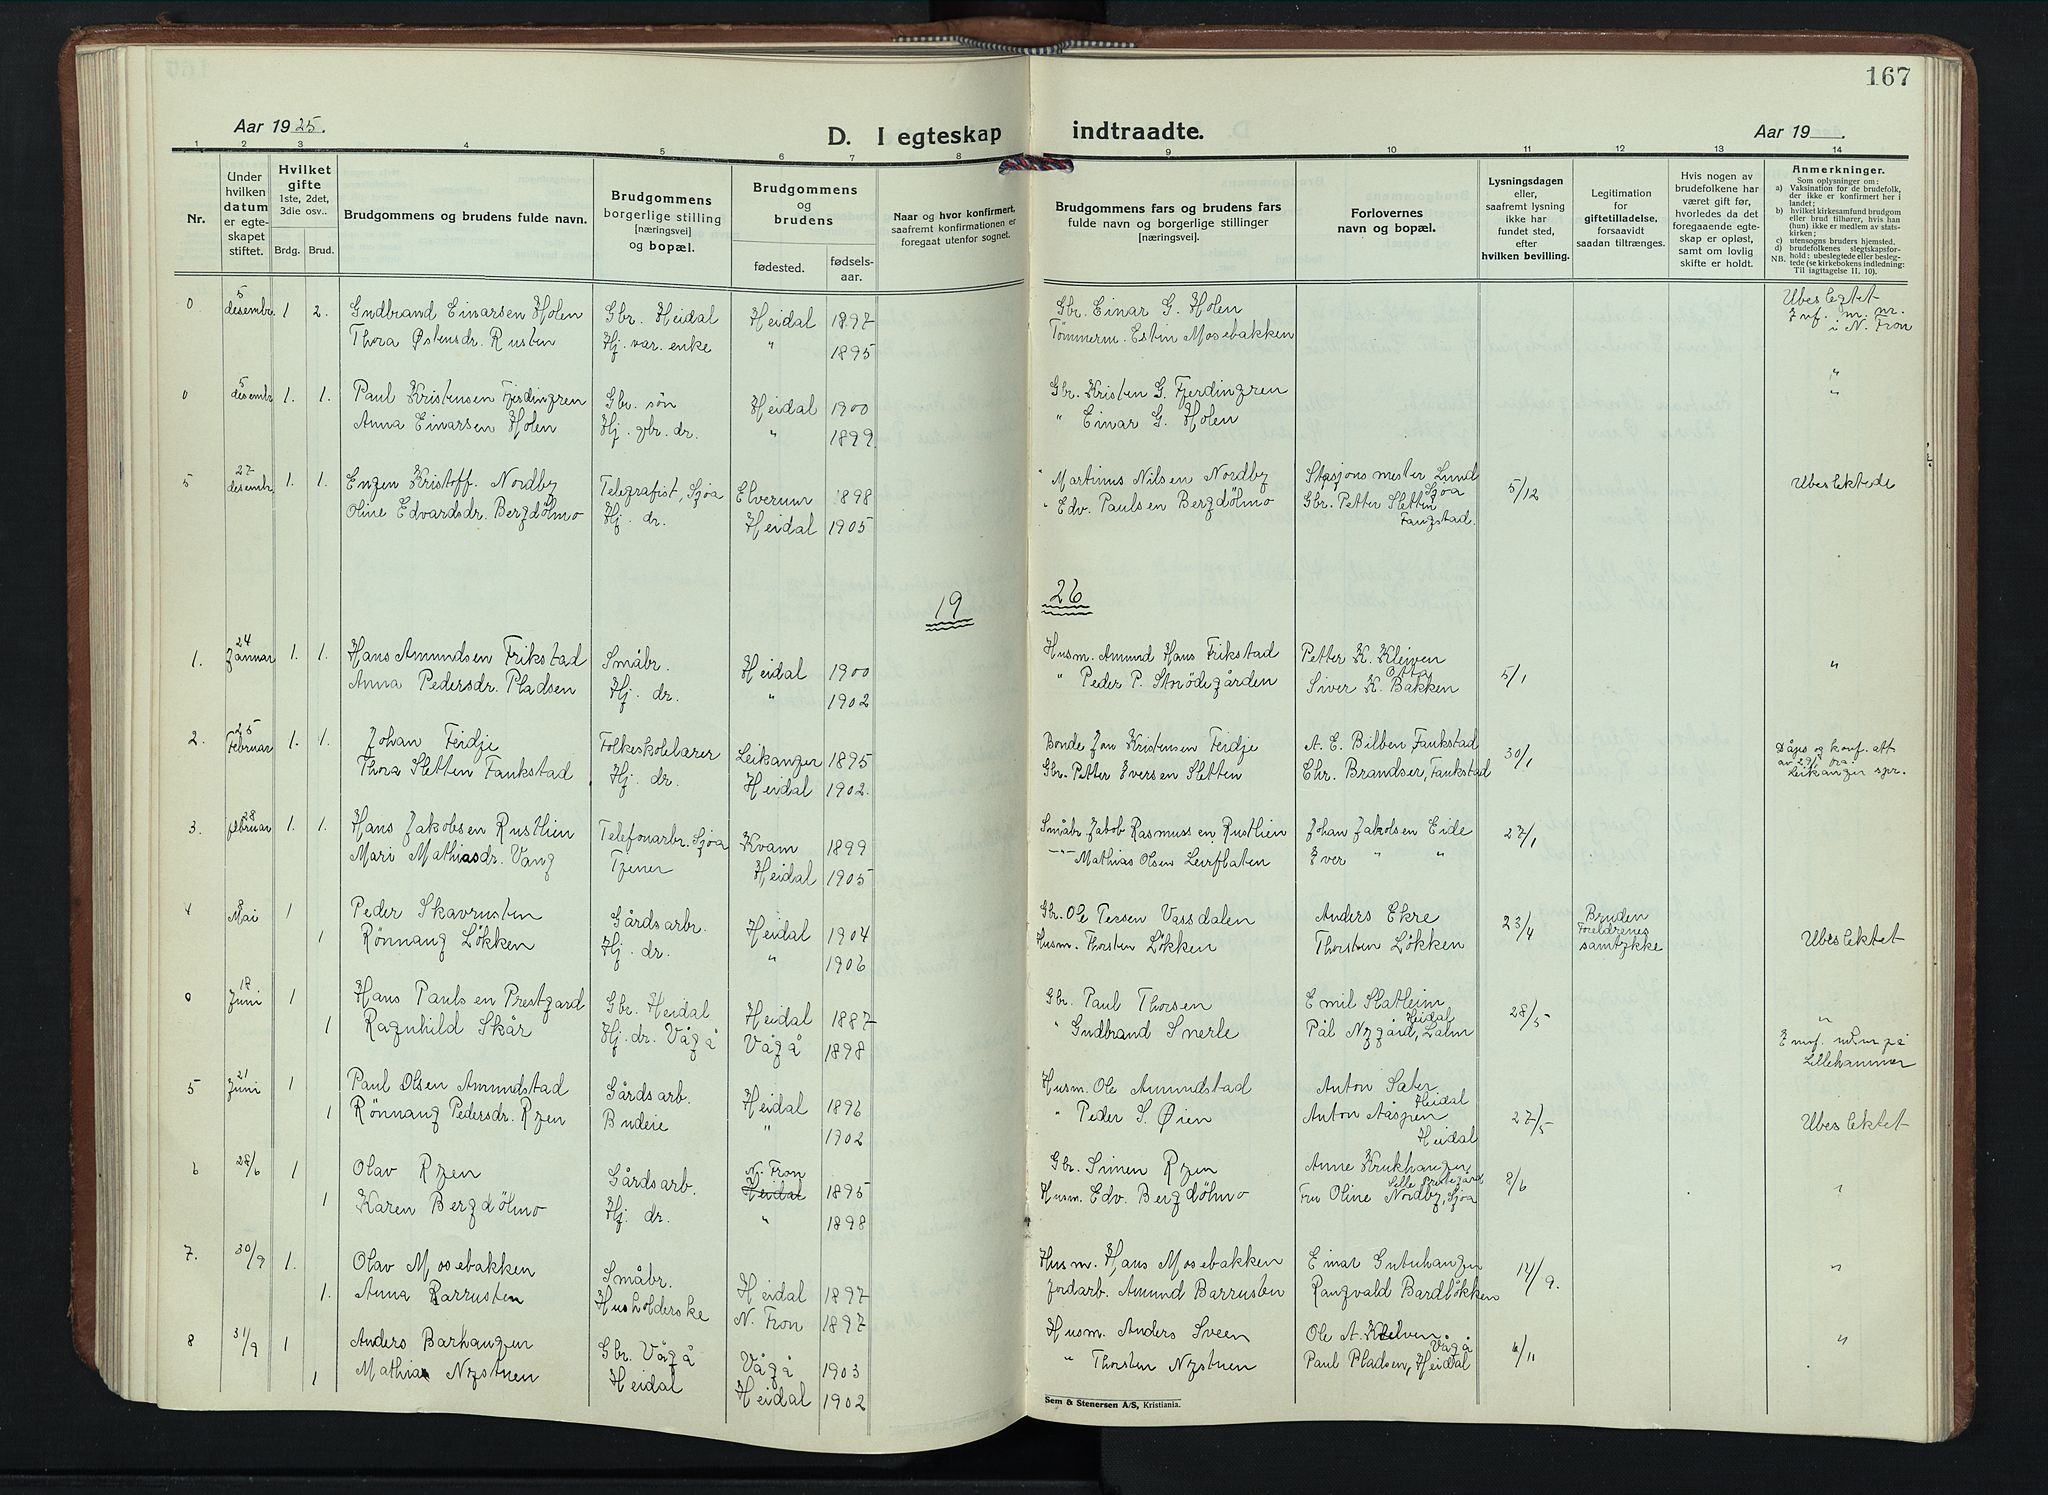 167
Aar 1925.
D. I egteskap indtraadte.
Aar 19
1 2 3 4 5 6 7 8 9 10 11 12 13 14
Nr.
Under hvilken datum er egteskapet stiftet.
Hvilket gifte 1ste, 2det, 3die osv..
Brdg. Brud.
Brudgommens og brudens fulde navn.
Brudgommens borgerlige stilling [næringsvei] og bopæl.
Brudgommens og brudens
fødested.
fødsels-aar.
Naar og hvor konfirmert, saafremt konfirmationen er foregaat utenfor sognet.
Brudgommens fars og brudens fars fulde navn og borgerlige stillinger [næringsvei].
Forlovernes navn og bopæl.
Lysningsdagen eller, saafremt lysning ikke har fundet sted, efter hvilken bevilling.
Legitimation for giftetilladelse, forsaavidt saadan tiltrænges.
Hvis nogen av brudefolkene har været gift før, hvorledes da det foregaaende egteskap er opløst, samt om lovlig skifte er holdt.
Anmerkninger.
Som oplysninger om:
a) Vaksination for de brudefolk, der ikke er konfirmert her i landet;
b) hvilket kirkesamfund brudgom eller brud tilhører, hvis han (hun) ikke er medlem av statskirken;
c) utensogns bruders hjemsted.
d) brudefolkenes slegtskapsforhold: ubeslegtede eller beslegtede (se kirkebokens indledning: Til iagttagelse II. 10).
NB.
0 5 desembr. 1 2. Gudbrand Einarsen Holen Gbr. Heidal Heidal 1897 Gbr. Einar G. Holen Ubeslegtet
Thora Østensdr. Rusten Hj. var. enke " 1895 Tømmerm. Estin Mosebakken i N. Fron
0 5 desembr 1. 1. Paul Kristensen Fjerdingren Gbr. søn Heidal 1900 Gbr. Kristen G. Fjerdingren "
Anna Einarsen Holen Hj. gbr. dr. " 1899 " Einar G. Holen "
5 27 desembr. 1. 1. Engen Kristoff. Nordby Telegrafist, Sjoa Elverum 1898 " Martinus Nilsen Nordby Stasjonsmester Lund Sjoa 5/12 Ubeslektede
Oline Edvardsdr. Bergdølmo Hj. dr. Heidal 1905 " Edv. Paulsen Bergdølmo Gbr. Petter Sletten Faugstad.
19 26
1. 24 Januar 1. 1. Hans Amundsen Frikstad Småbr. Heidal 1900 Husm. Amund Hans Frikstad Petter K. Kleiven Otta 5/1 "
Anna Pedersdr. Pladsen Hj. dr. " 1902 " Peder P. Stuødegården Siver K. Bakken
2. 25 Februar 1. 1. Johan Feidje Folkeskolelærer Leikanger 1895 Bonde Jon Kristensen Feidje A. E. Bilben Faukstad 30/1 Dåps og konf. att av 29/1 fra Leikanger spr.
Thora Sletten Faukstad Hj. dr. Heidal 1902. Gbr. Petter Eversen Sletten Chr. Brandser, Faukstad
3. 28 februar 1. 1. Hans Jakobsen Rusthien Telefonarbr. Sjoa Kvam 1899 Småbr Jakob Rasmussen Rusthien Johan Jakolsen Eide 27/1
Mari Mathiasdr. Vang Tjener Heidal 1905 -"- Mathias Olsen Leirflaten Iver " "
4 8 Mai 1 Peder Skavrusten Gårdsarbr. Heidal 1904 Gbr. Ole Tersen Vassdalen Anders Ekre 23/4 Bruden Foreldrenes samtykke Ubeslektet
1 Rønnaug Løkken Hj. dr. " 1906 Husm. Thorsten Løkken Thorsten Løkken
0 18 Juni 1 Hans Paulsen Prestgard Gbr. Heidal Heidal 1887 Gbr. Paul Thorsen Emil Slatleim Heidal 28/5 "
1 Ragnhild Skår Hj. dr. Vågå Vågå 1898 " Gudbrand Snerle Pål Nygård, Lalm Lillehammer
5 21 Juni 1 Paul Olsen Amundstad Gårdsarb. Heidal 1896 Husm. Ole Amundstad Anton Sater Heidal 27/5 Ubeslektet
1 Rønnaug Pedersdr. Ryen Budeie " 1902 " Peder S. Øien Anton Aaspen Heidal
6 28/6 1 Olav Ryen Gårdsarb. N. Fron Heidal 1895 Gbr. Simen Ryen Anne Krukhaugen 8/6 "
1 Karen Bergdølmo Hj. dr. " 1898 Husm. Edv. Bergdølmo Fru Oline Nordby, Sjoa
7. 30/9 1. Olav Mosebakken Småbr. Heidal 1897 Husm. Hans Mosebakken Einar Gutuhaugen 14/9. "
1. Anna Barrusten Husholderske N. Fron 1897 Jordarb. Amund Barrusten Rangvald Bardløkken
8 31/9 1 Anders Barhaugen Gbr. Vågå Vågå 1903 Husm. Anders Sveen Ole A. Kleiven Vågå 6/11 "
1 Mathia Nystuen Heidal Heidal 1902 " Thorsten Nystuen Paul Pladsen, Heidal
Sem & Stenersen A/S, Kristiania.